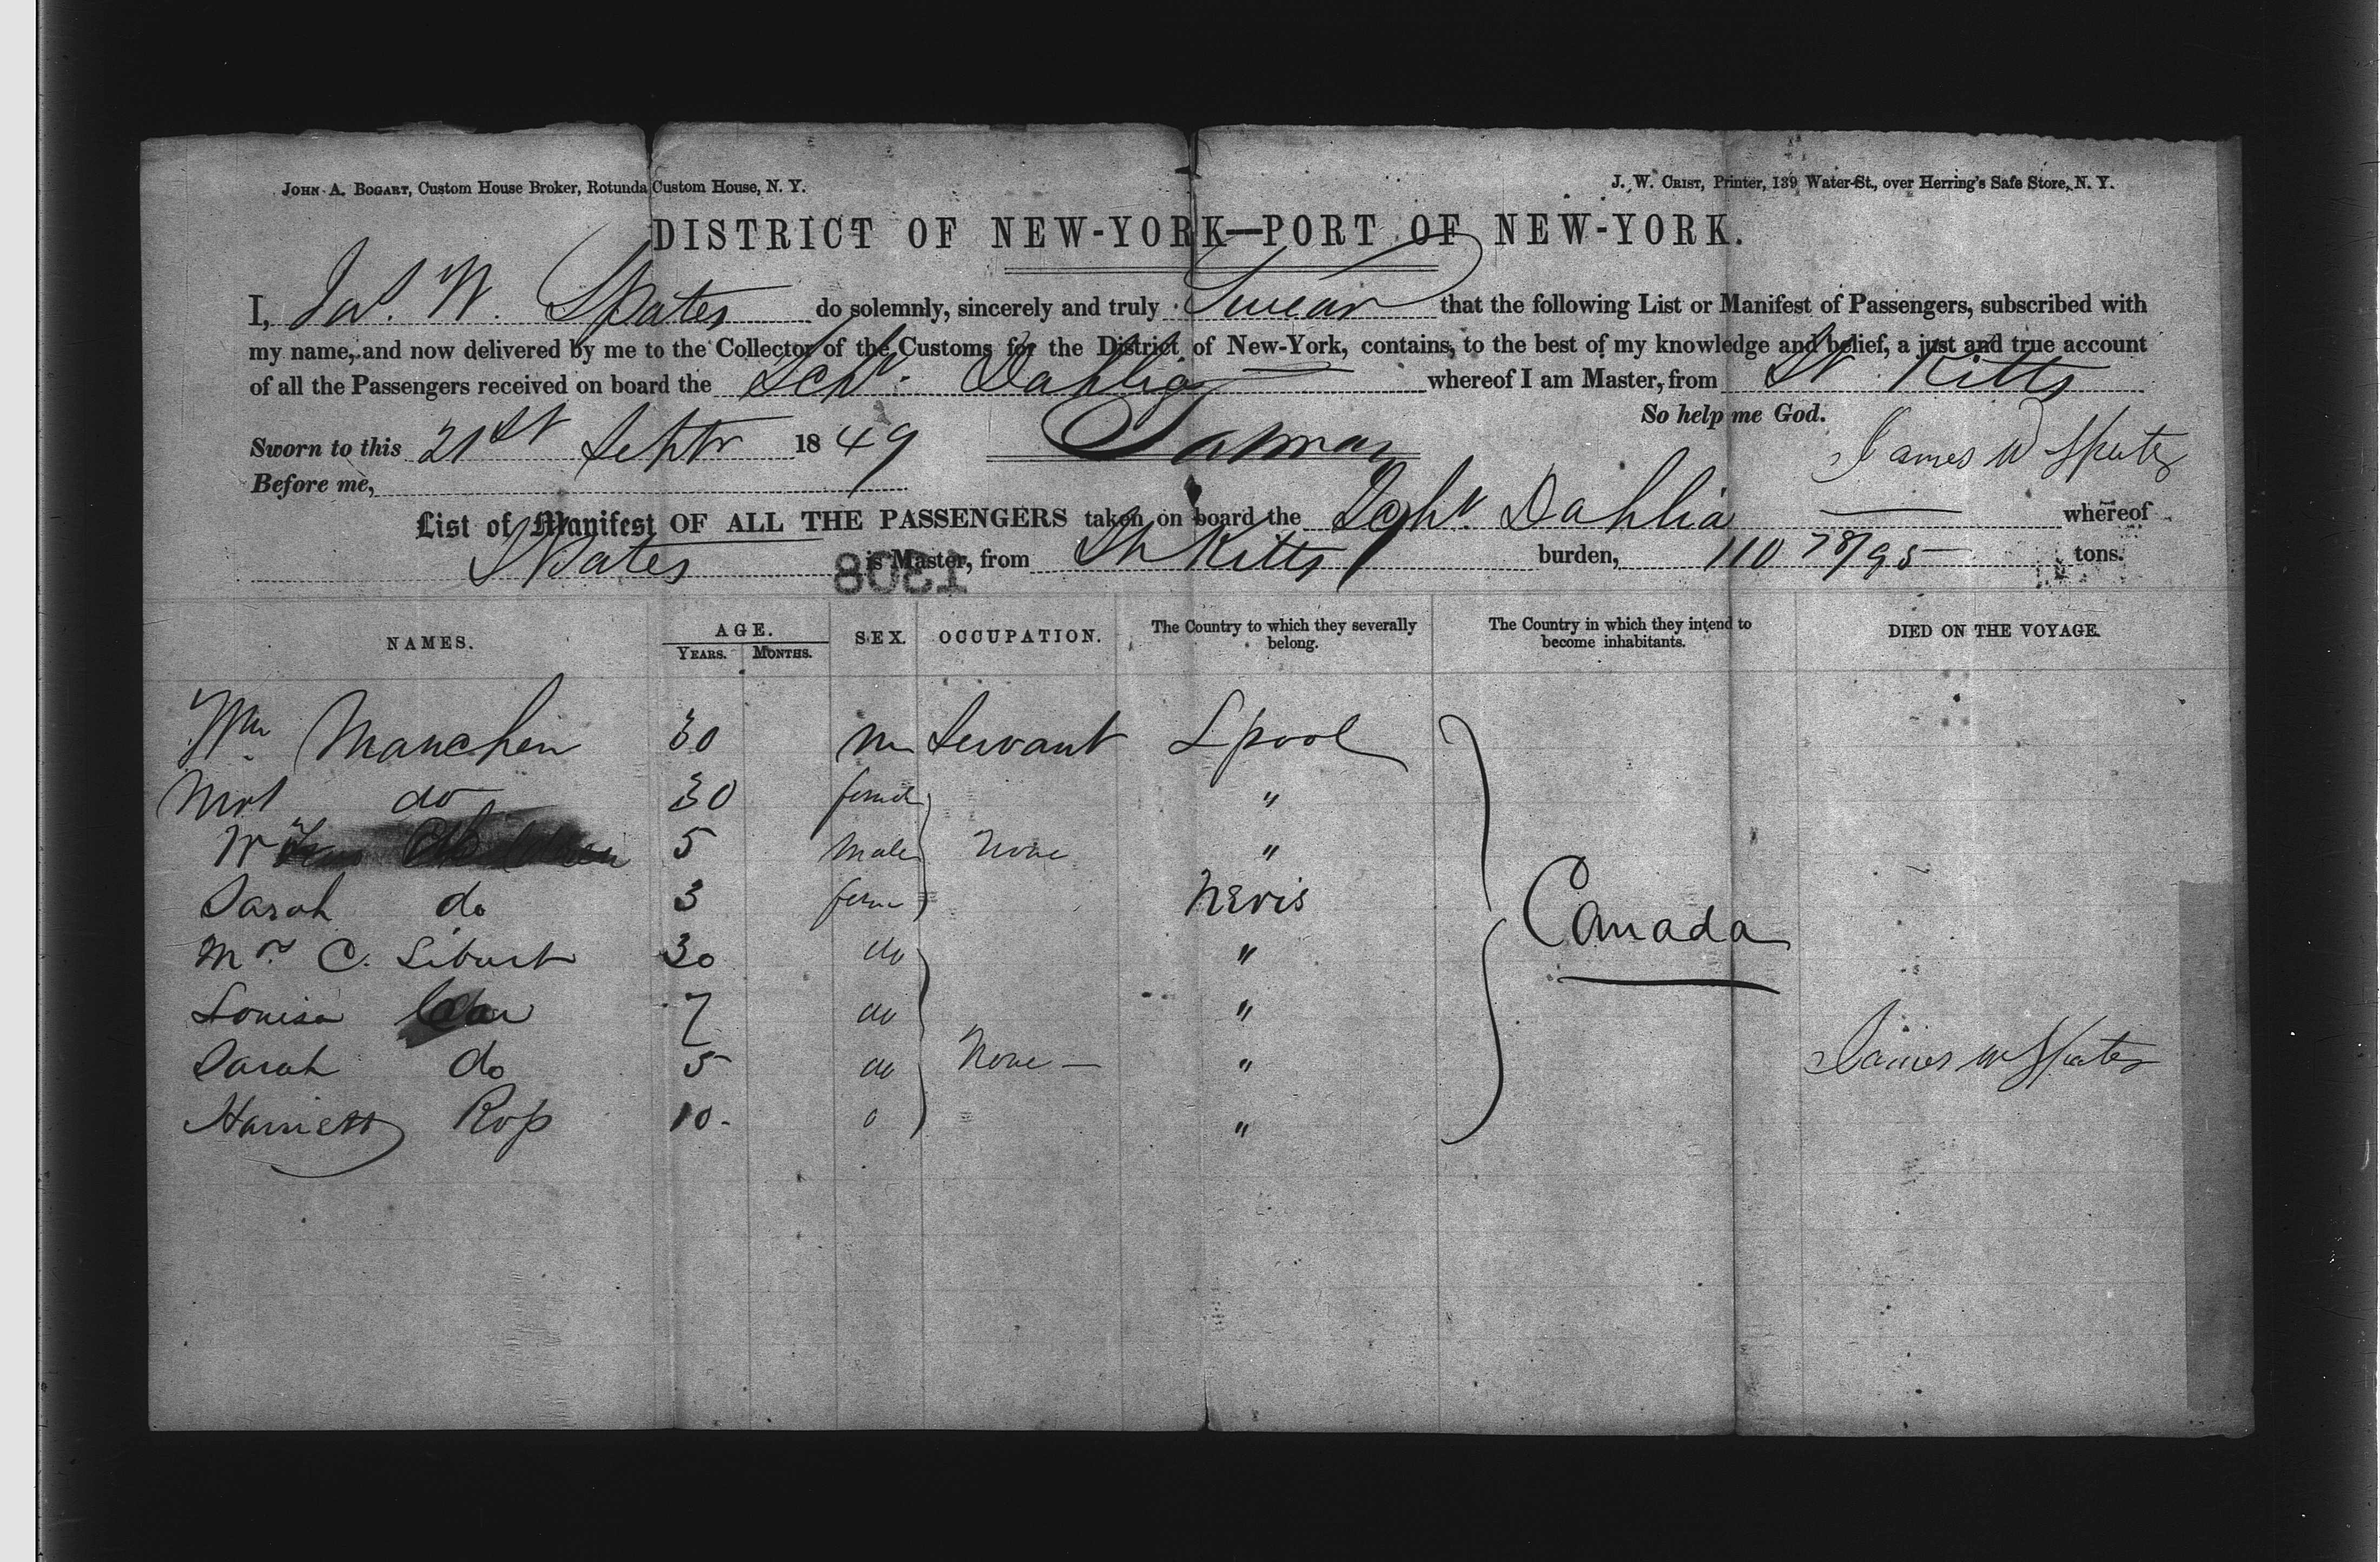 JOHN A. BOGART, Custom House Broker, Rotunda Custom House, N. Y.
J. W. CRIST, Printer, 139 Water-St., over Herring's Safe Store, N. Y.
DISTRICT OF NEW-YORK—PORT OF NEW-YORK.
I, Jas. W. Spates do solemnly, sincerely and truly Swear that the following List or Manifest of Passengers, subscribed with
my name, and now delivered by me to the Collector of the Customs for the District of New-York, contains, to the best of my knowledge and belief, a just and true account
of all the Passengers received on board the Schr. Dahlia whereof I am Master, from St Kitts
So help me God.
Sworn to this 21st Septr 1849
James W Spates
Before me,
List of Manifest OF ALL THE PASSENGERS taken on board the Schr. Dahlia whereof
Spates is Master, from St Kitts burden, 110 78/95 tons.
1308
NAMES. AGE. SEX. OCCUPATION. The Country to which they severally belong. The Country in which they intend to become inhabitants. DIED ON THE VOYAGE.
YEARS. MONTHS.
Wm Manchin 30 m Servant Lpool
Mrs do 30 "
5 Male None "
Sarah do 3 Nevis
C. 30 do "
Canada
Louisa 7 do "
Sarah do 5 do None — "
James W Spates
Harriett Ross 10. "